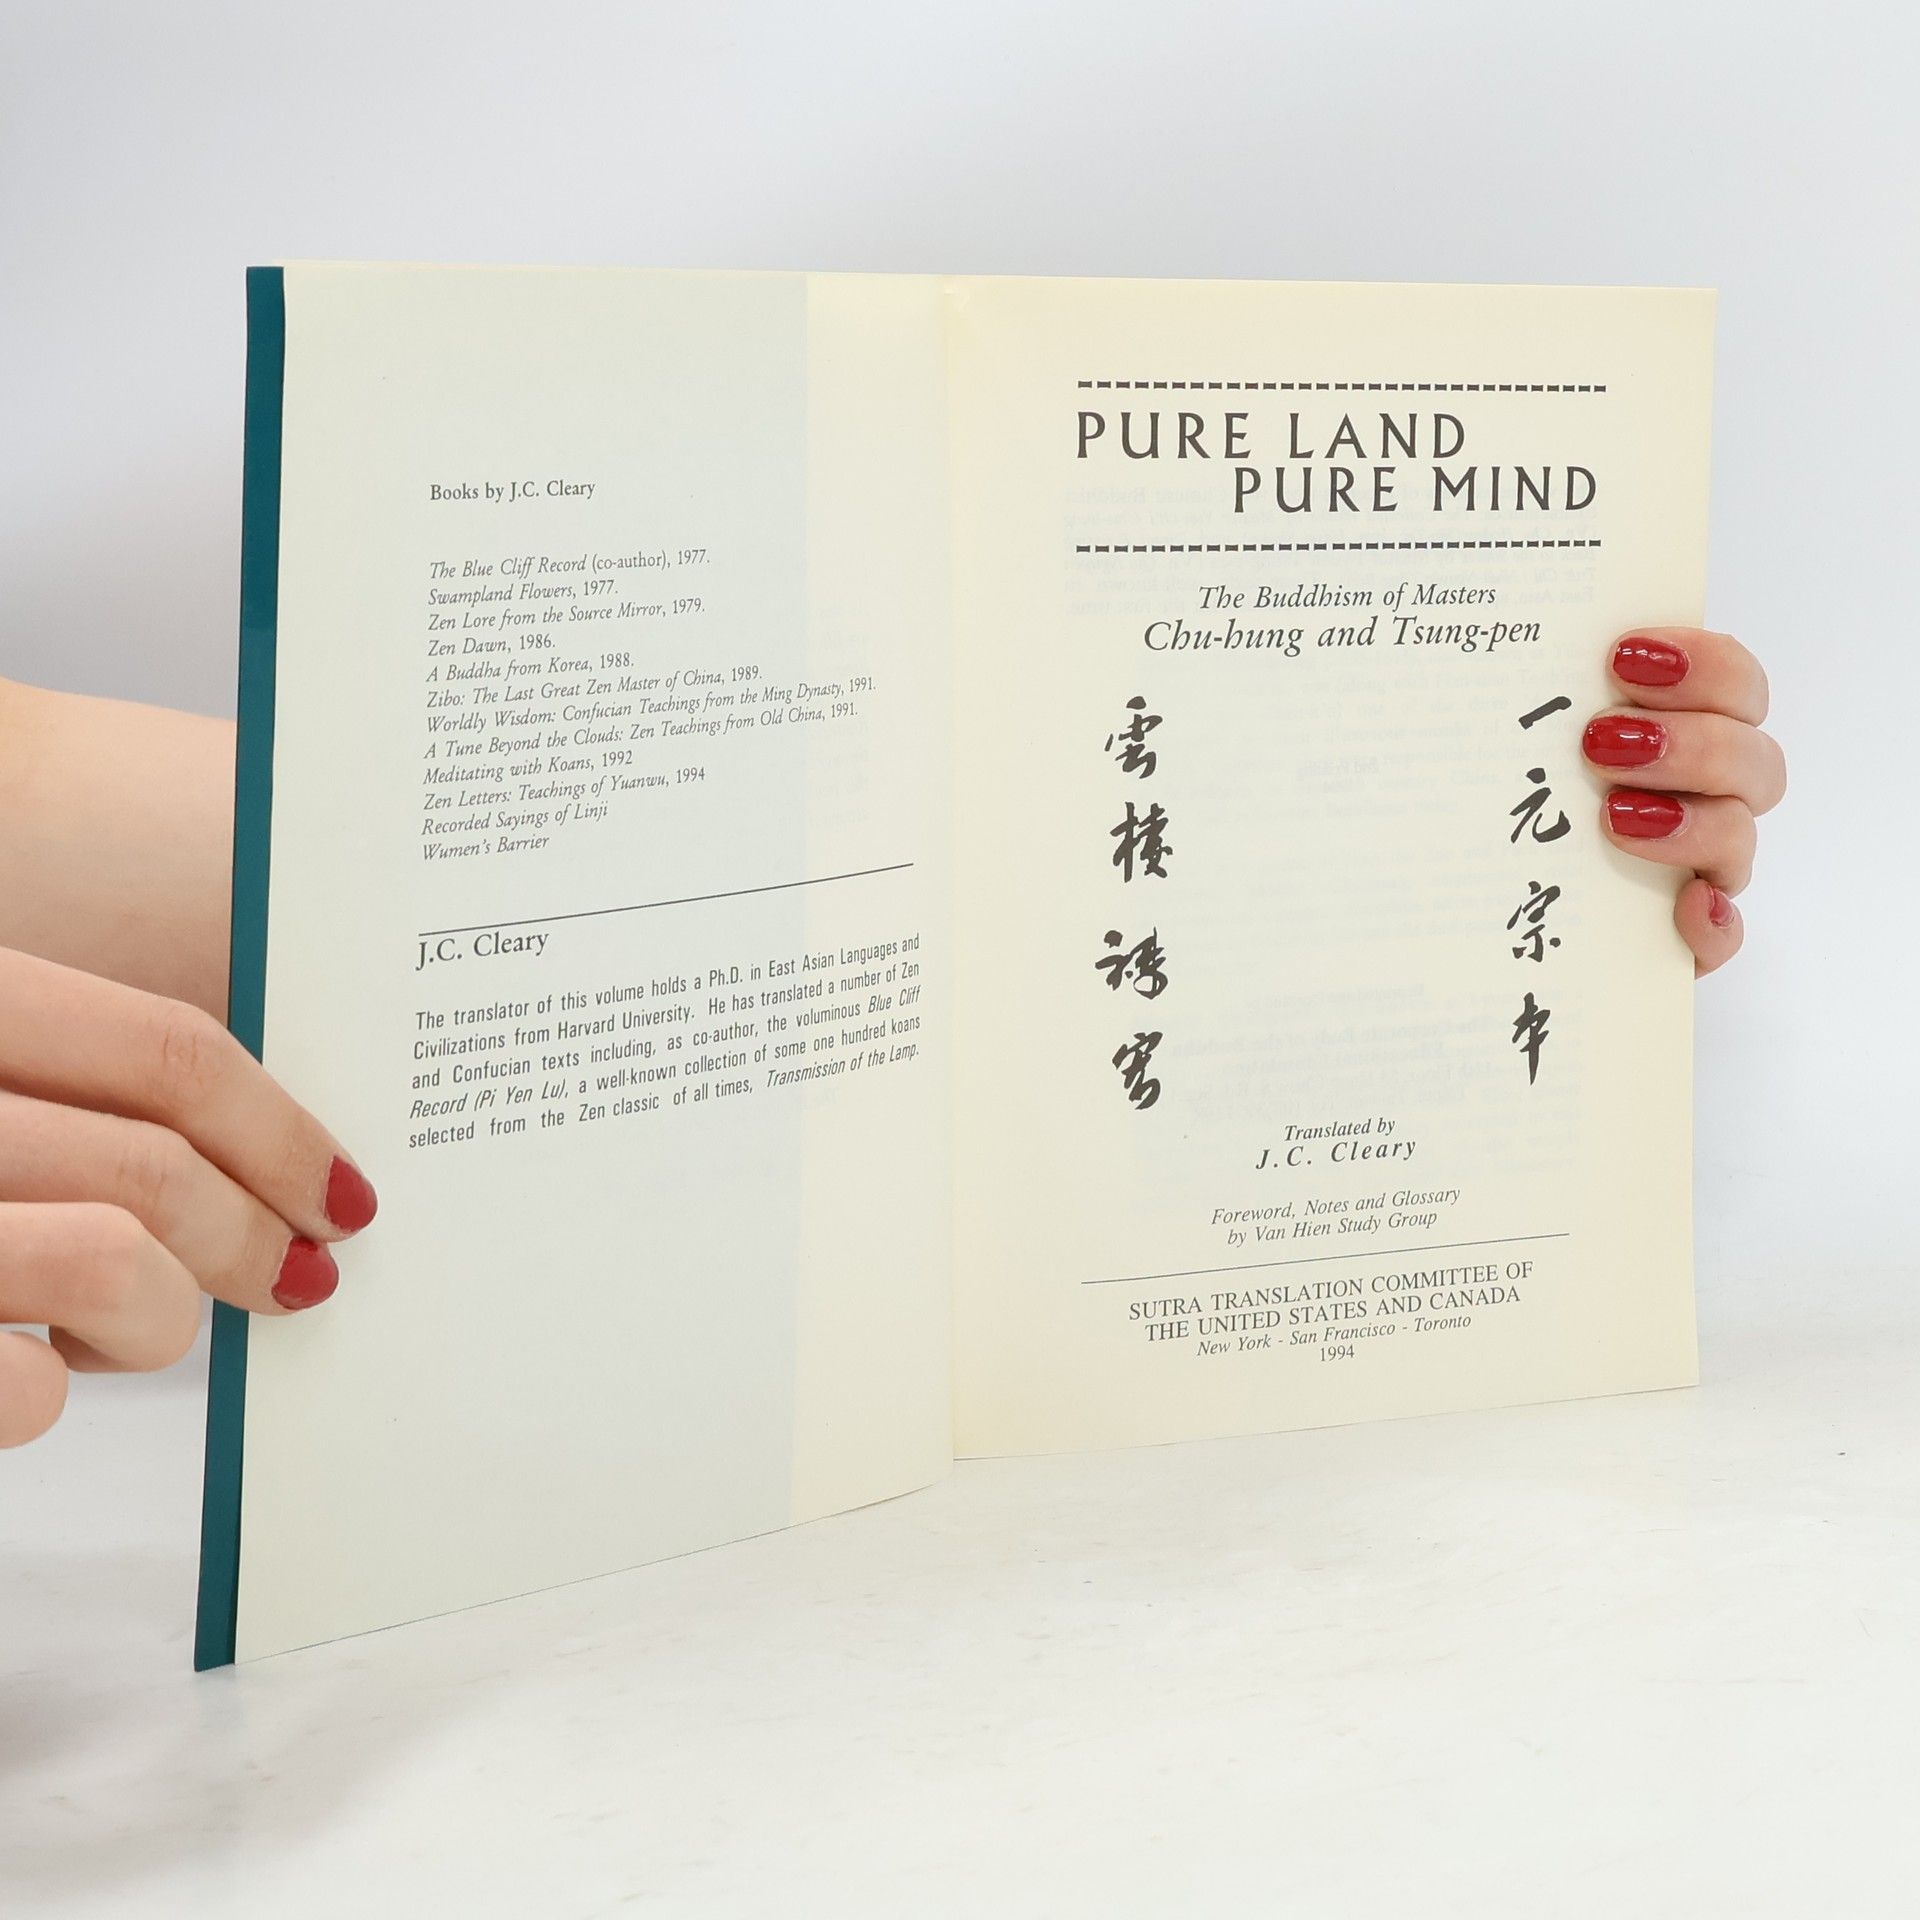 Books by J.C. Cleary
The Blue Cliff Record (co-author), 1977.
Swampland Flowers, 1977.
Zen Lore from the Source Mirror, 1979.
Zen Dawn, 1986.
A Buddha from Korea, 1988.
Zibo: The Last Great Zen Master of China, 1989.
Worldly Wisdom: Confucian Teachings from the Ming Dynasty, 1991.
A Tune Beyond the Clouds: Zen Teachings from Old China, 1991.
Meditating with Koans, 1992
Zen Letters: Teachings of Yuanwu, 1994
Recorded Sayings of Linji
Wumen's Barrier
J.C. Cleary
The translator of this volume holds a Ph.D. in East Asian Languages and
Civilizations from Harvard University. He has translated a number of Zen
and Confucian texts including, as co-author, the voluminous Blue Cliff
Record (Pi Yen Lu), a well-known collection of some one hundred koans
selected from the Zen classic of all times, Transmission of the Lamp.
PURE LAND
PURE MIND
The Buddhism of Masters
Chu-hung and Tsung-pen
一元宗本
雲棲袾宏
Translated by
J.C. Cleary
Foreword, Notes and Glossary
by Van Hien Study Group
SUTRA TRANSLATION COMMITTEE OF
THE UNITED STATES AND CANADA
New York - San Francisco - Toronto
1994